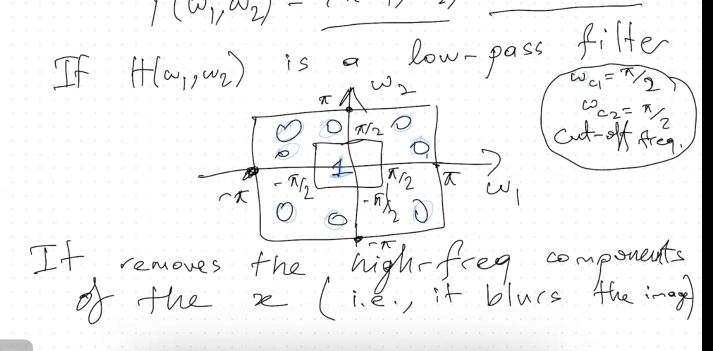 If H(ω₁,ω₂) is a low-pass filter
ω_c1 = π/2
ω_c2 = π/2
cut-off freq.
ω₂
π
0 0 π/2 0
0 1 0
-π -π/2 π/2 π ω₁
-π/2
0 0 0
-π
It removes the high-freq components
of the x (i.e., it blurs the image)